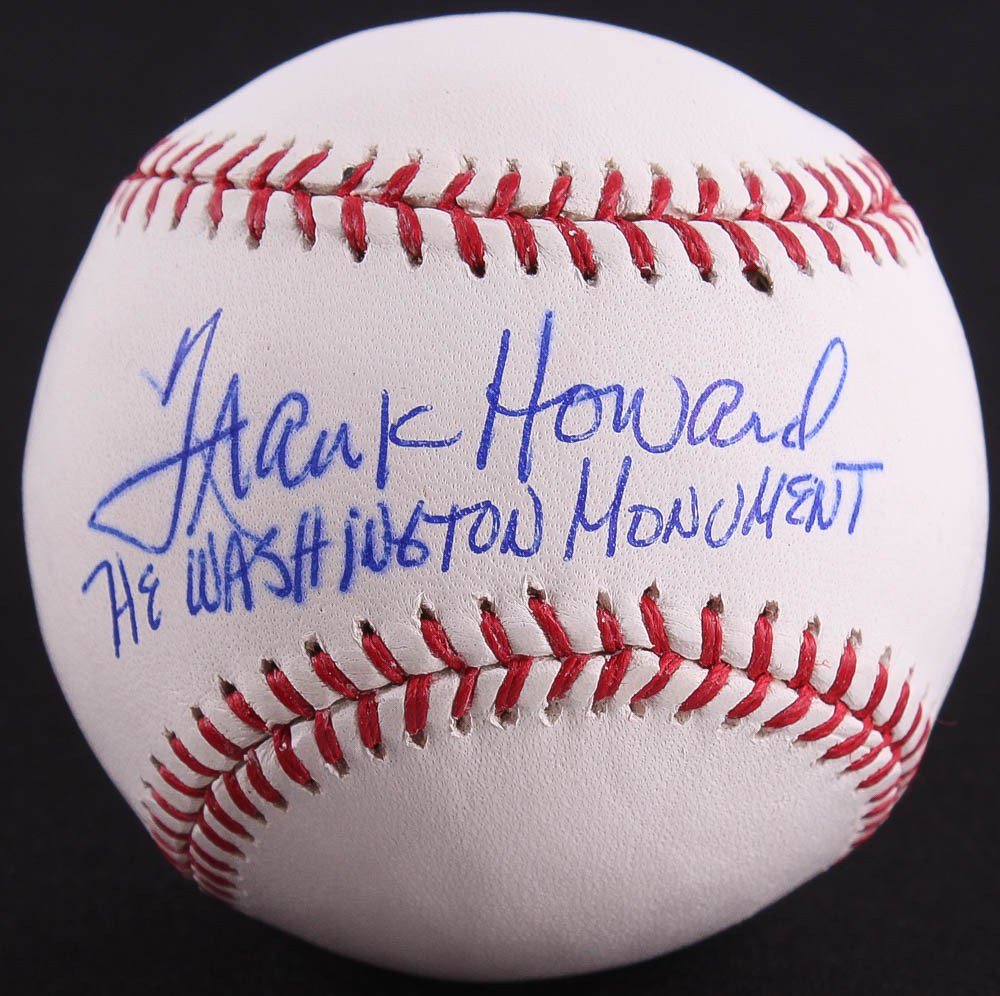 Frank Howard
THE WASHINGTON MONUMENT